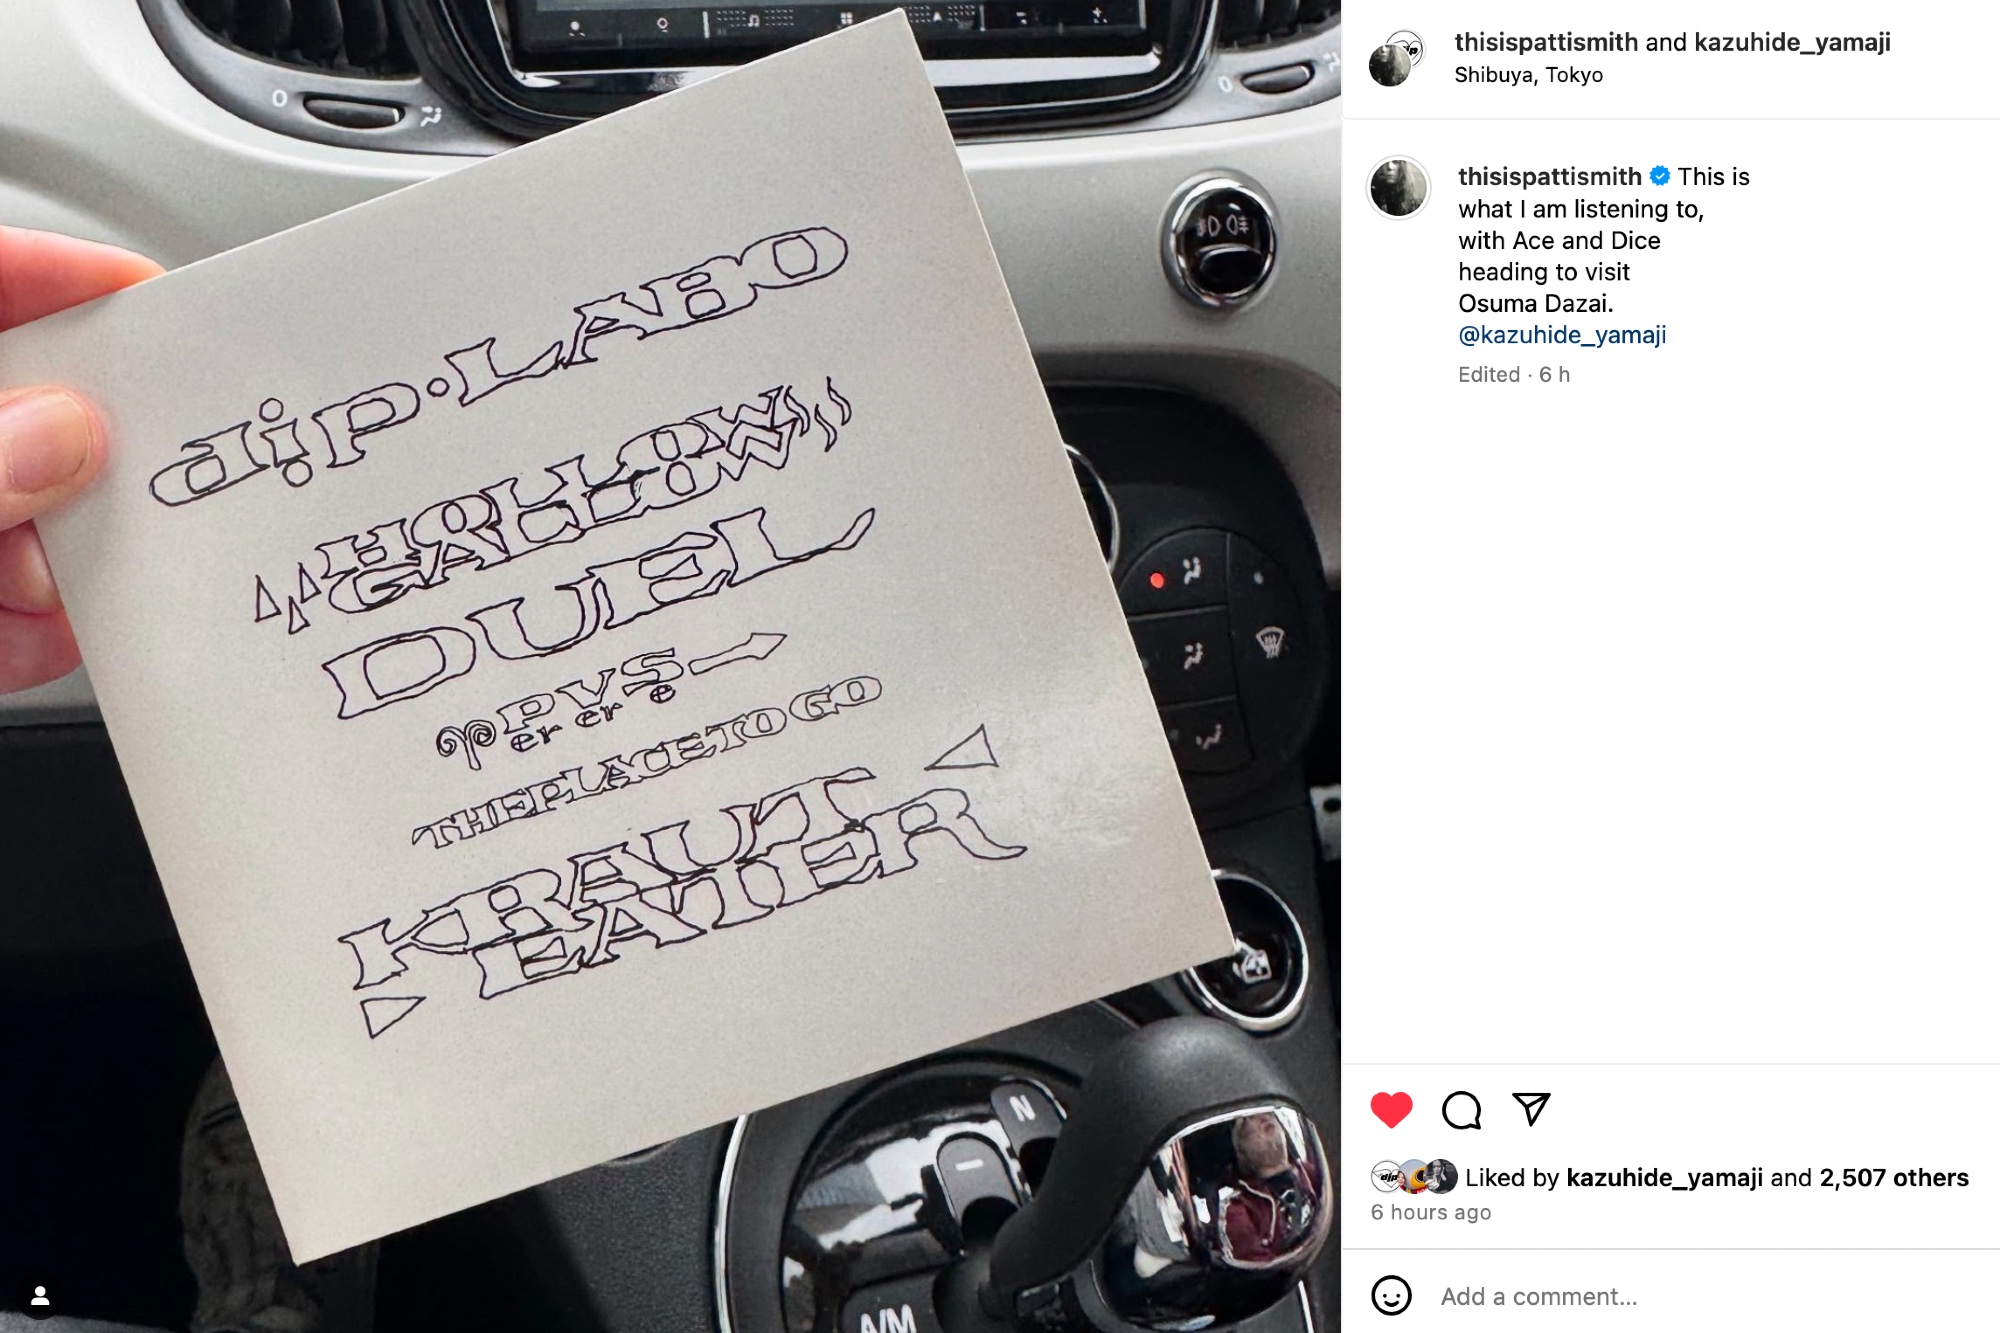 dip・LABO
HALLOW
GALLOW
DUEL
PVS
er er e
THE PLACE TO GO
KRAUT
EATER
0
0
N
A/M
thisispattismith and kazuhide_yamaji
Shibuya, Tokyo
thisispattismith This is
what I am listening to,
with Ace and Dice
heading to visit
Osuma Dazai.
@kazuhide_yamaji
Edited · 6 h
Liked by kazuhide_yamaji and 2,507 others
6 hours ago
Add a comment...